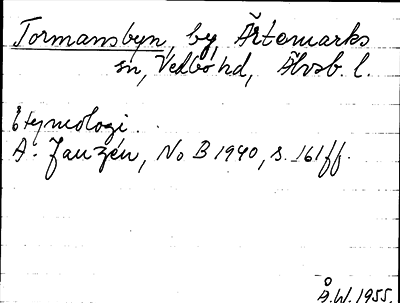 Tormansbyn, by, Ärtemarks
sn, Vedbo hd, Älvsb. l.
Etymologi.
A. Janzén, No B 1940, s. 161 ff.
Å. W. 1955.